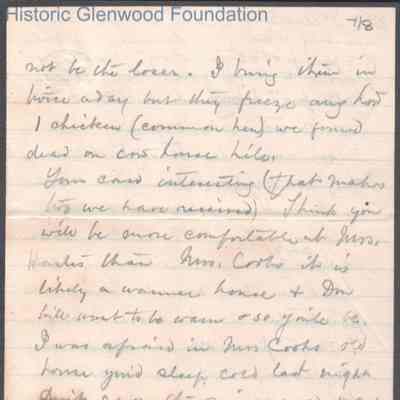 Historic Glenwood Foundation
7/8
not be the loser. I bring them in
twice a day but they freeze any how
1 chicken (common hen) we found
dead on cow house hile.
Your card interesting (that makes
two we have received) I think you
will be more comfortable at Mrs.
than Mrs. Cooks its is
likely a warmer house + Don
will want to be warm + so you'll be.
I was afraid in Mrs Cooks old
house you'd sleep cold last night